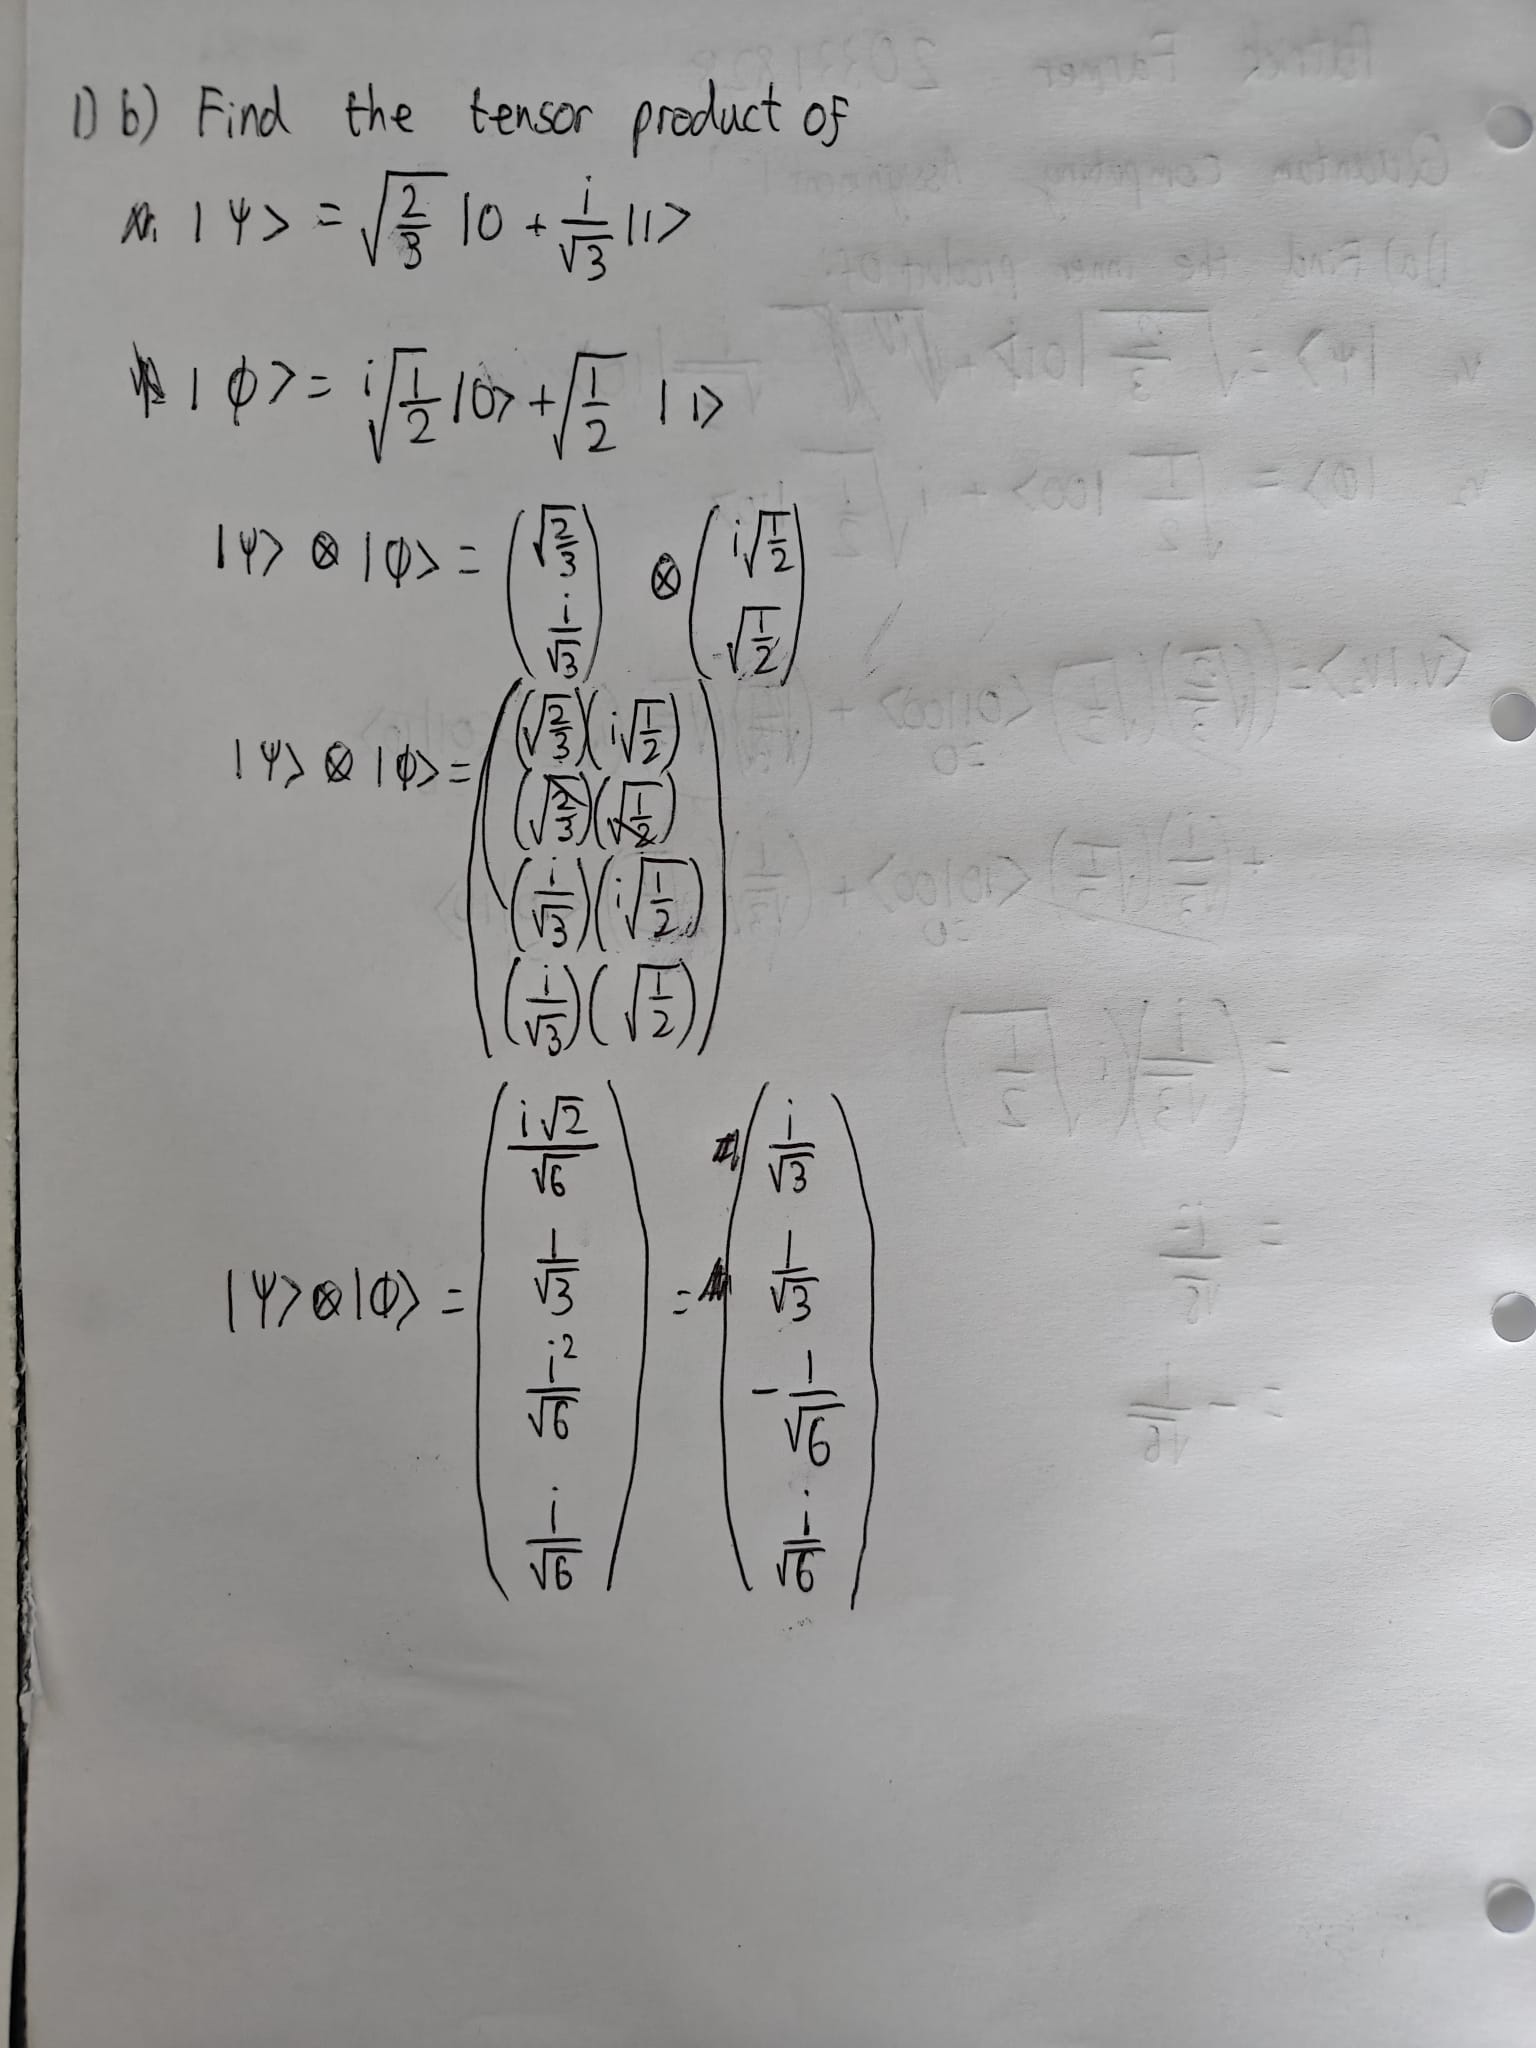 1) b) Find the tensor product of
|ψ> = √(2/3) |0 + i/√3 |1>
|φ> = i√(1/2) |0> + √(1/2) |1>
|ψ> ⊗ |φ> = (√(2/3) ; i/√3) ⊗ (i√(1/2) ; √(1/2))
|ψ> ⊗ |φ> = ((√(2/3))(i√(1/2)) ; (√(2/3))(√(1/2)) ; (i/√3)(i√(1/2)) ; (i/√3)(√(1/2)))
|ψ> ⊗ |φ> = (i√2/√6 ; 1/√3 ; i²/√6 ; i/√6) = (i/√3 ; 1/√3 ; -1/√6 ; i/√6)